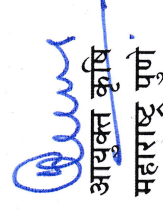 आयुक्त कृषि
महाराष्ट्र पुणे